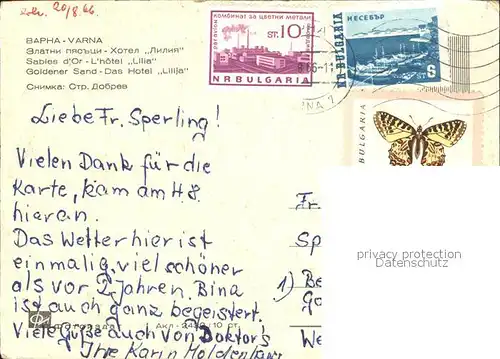 erh. 20/8.66
ВАРНА - VARNA
Златни пясъци - Хотел „Лилия"
Sables d'Or - L'hôtel „Lilia"
Goldener Sand - Das Hotel „Lilija"
Снимка: Стр. Добрев
комбинат за цветни метали
ST. 10
NR BULGARIA
НЕСЕБЪР
NR. BULGARIA
BULGARIA
Liebe Fr. Sperling!
Vielen Dank für die
Karte, kam am 4.8.
hier an.
Das Wetter hier ist
einmalig, viel schöner
als vor 2 Jahren. Bina
ist auch ganz begeistert.
Viele Grüße auch von Doktor's
Ihre Karin
Fr.
Sp
1) Be
We
privacy protection
Datenschutz
ФОТОИЗДАТ Акл - 2439 / 10 ст.